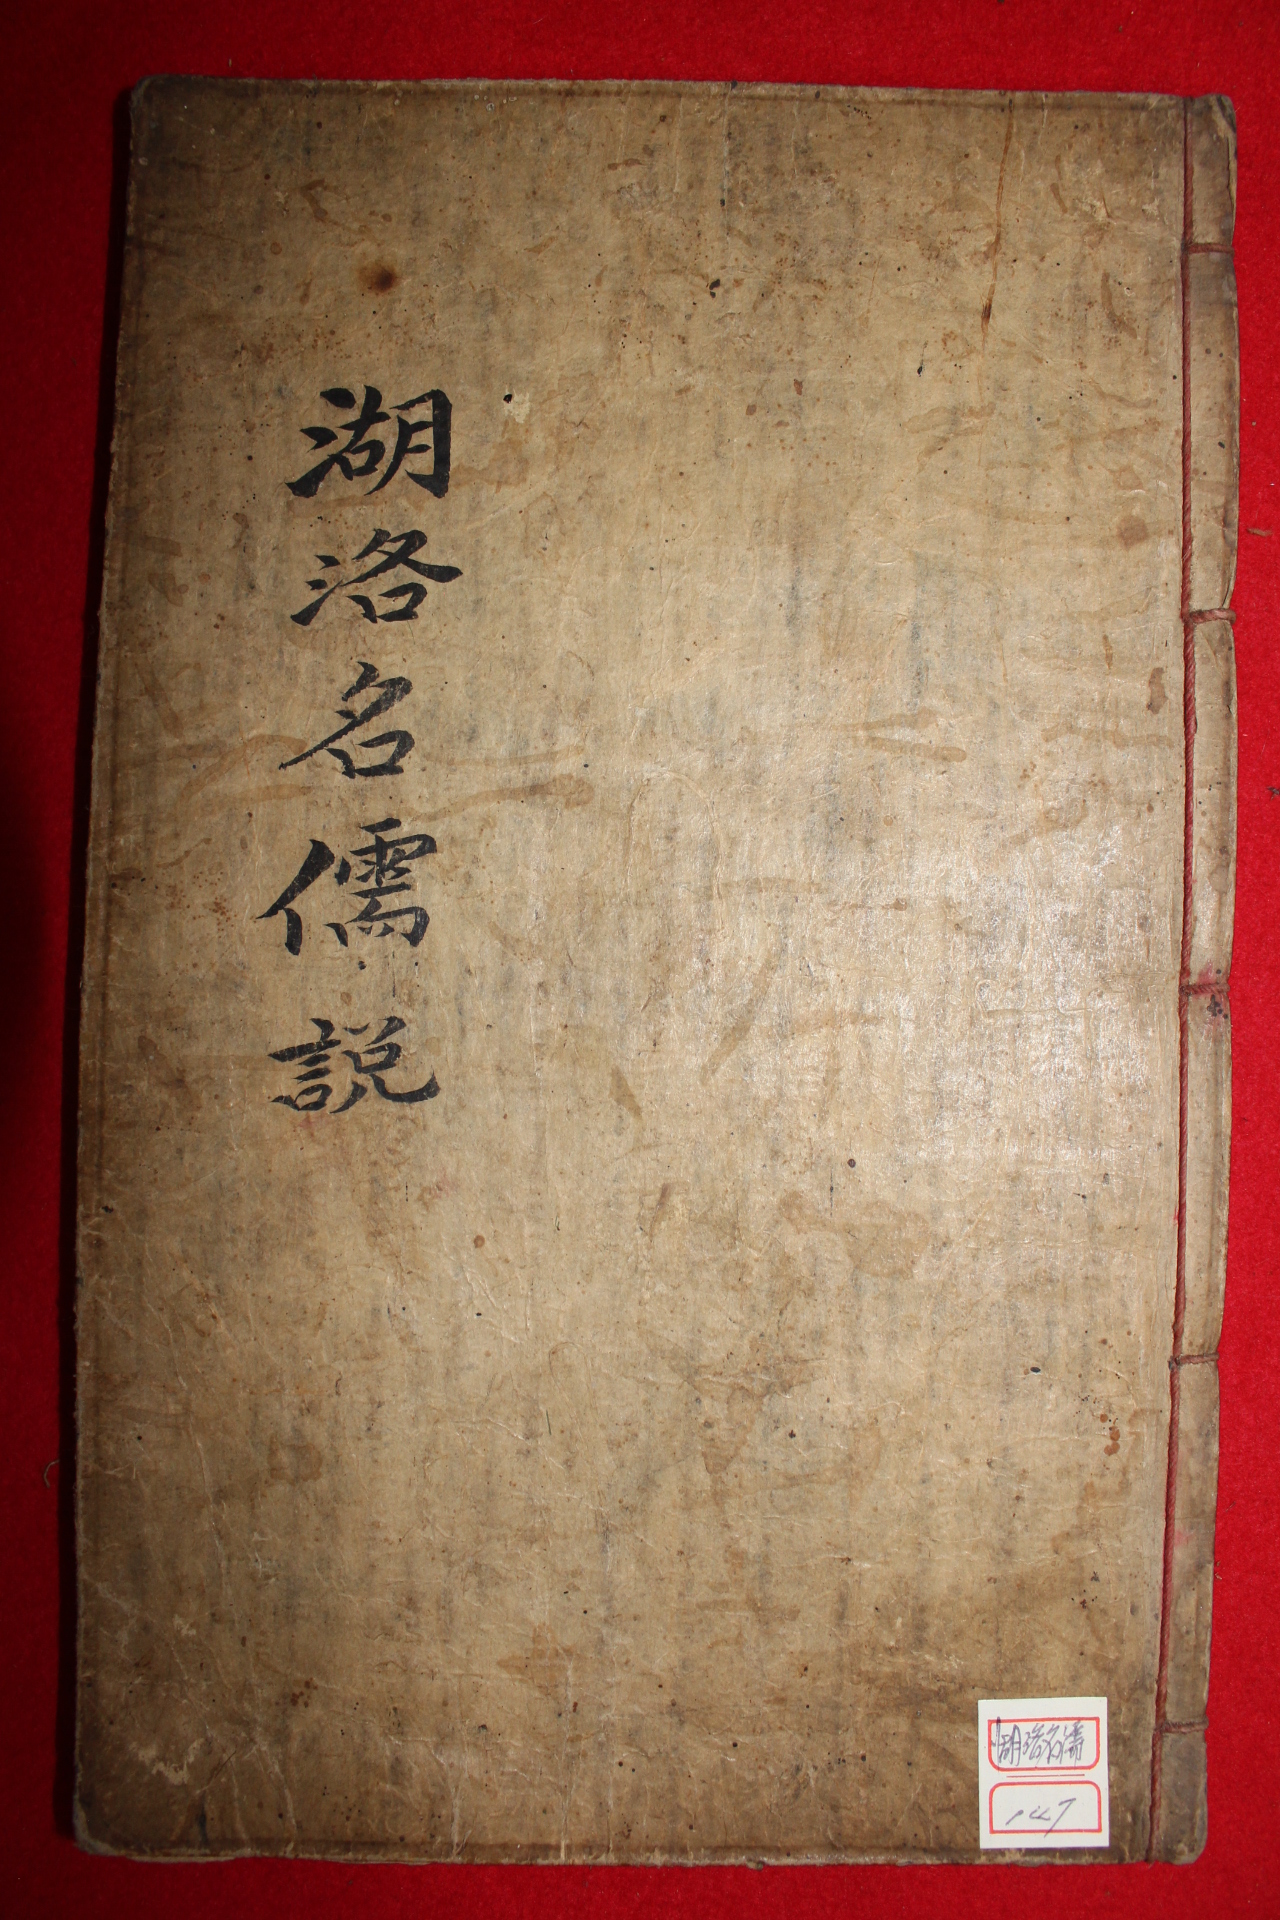 湖洛名儒說
湖洛名儒